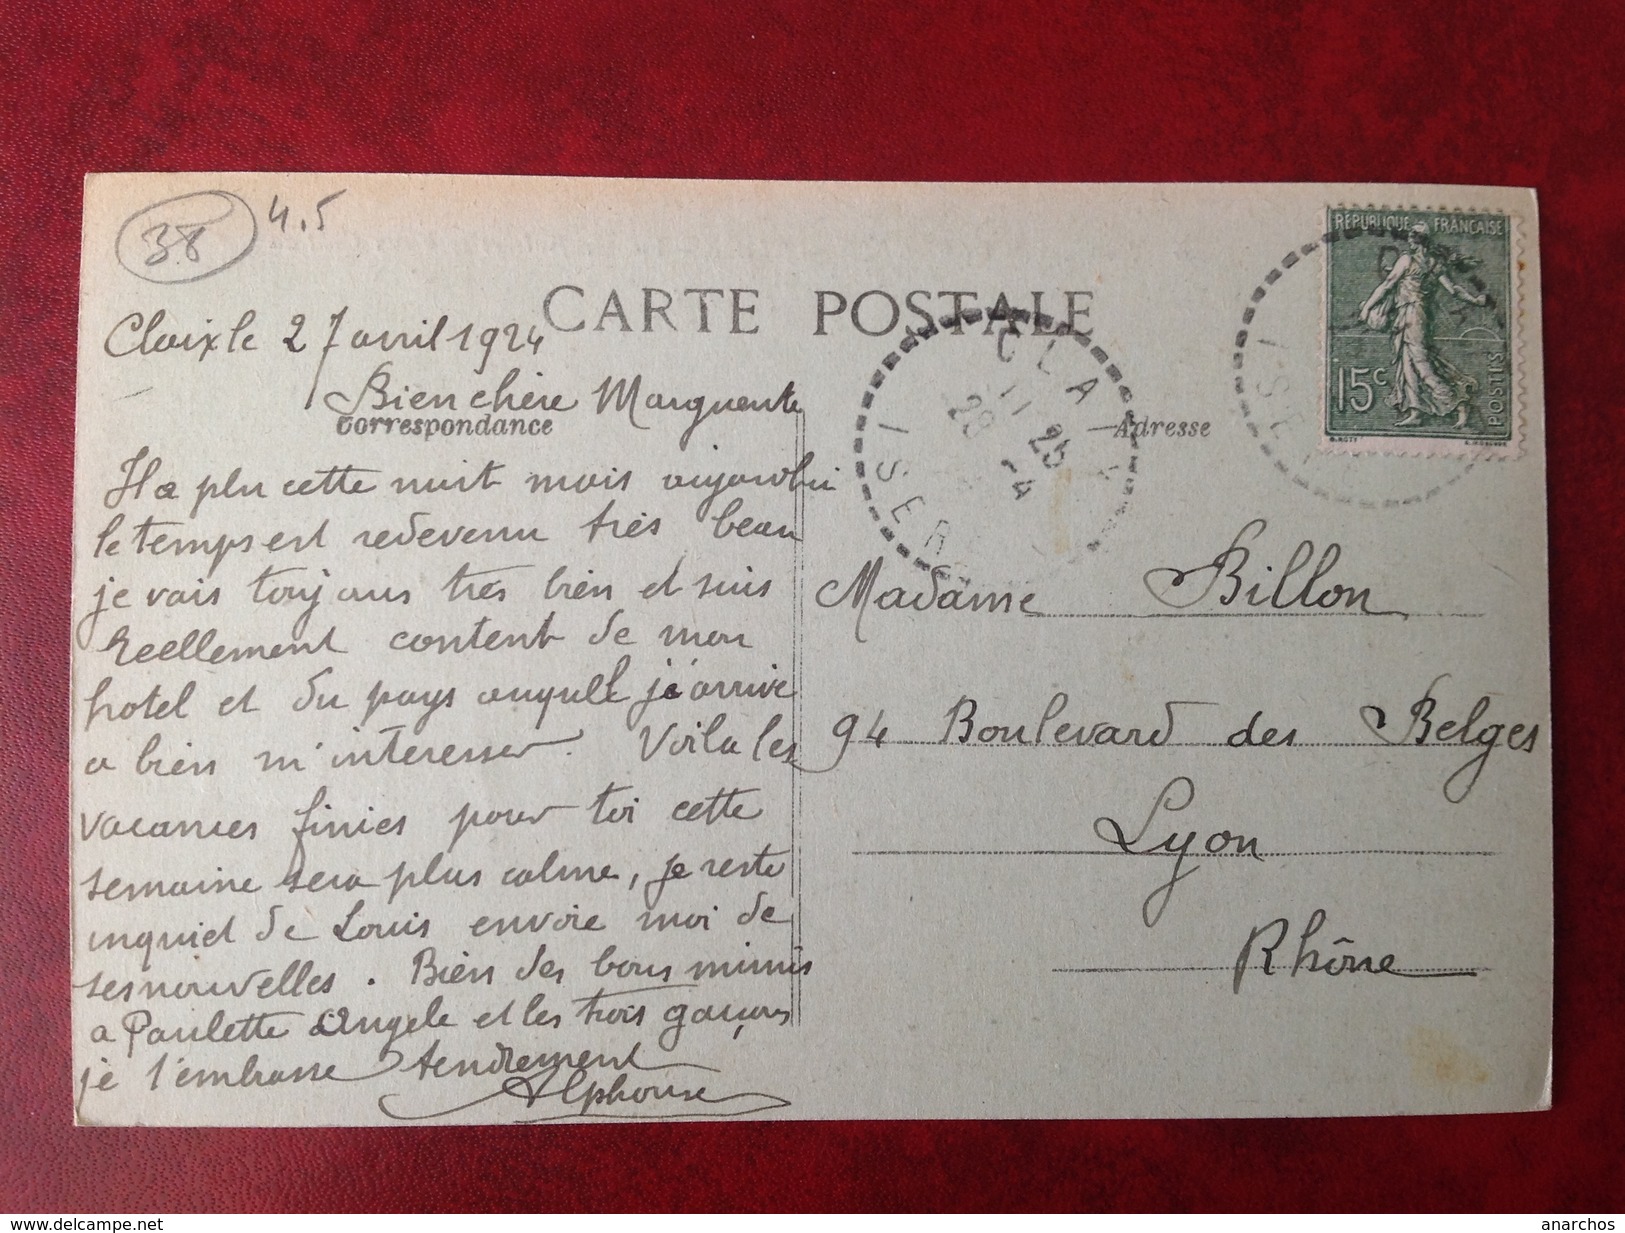 38
4.5
CARTE POSTALE
RÉPUBLIQUE FRANÇAISE
15c
POSTES
CLAIX
11 25
28 -4
ISERE
ISERE
Claix le 27 avril 1924
Bien chère Marguerite
Correspondance
Adresse
Il a plu cette nuit mais aujourdhui
le temps est redevenu très beau
je vais toujours très bien et suis
reellement content de mon
hotel et du pays auquel j'arrive
a bien m'interesser. Voila les
vacances finies pour toi cette
semaine sera plus calme, je reste
inquiet de Louis envoie moi de
ses nouvelles. Bien des bons mimis
a Paulette Angele et les trois garçons
je t'embrasse tendrement
Alphonse
Madame Billon
94 Boulevard des Belges
Lyon
Rhône
www.delcampe.net
anarchos